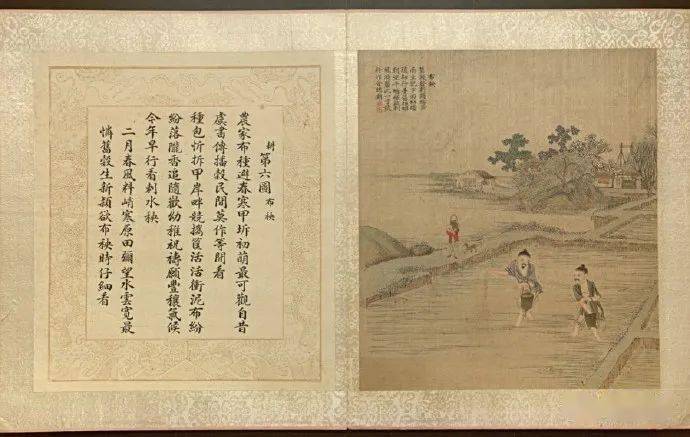 耕 第六圖 布秧
農家布種避春寒甲坼初萌最可觀自昔
虞書傳播穀民間莫作等閒看
種包忻拆甲岸畔競攜筐活活衝泥布紛
紛落隴香追隨歡幼稚祝禱願豐穰氣候
今年早行看刺水秧
二月春風料峭寒原田彌望水雲寬最
憐舊穀生新穎欲布秧時仔細看
布秧